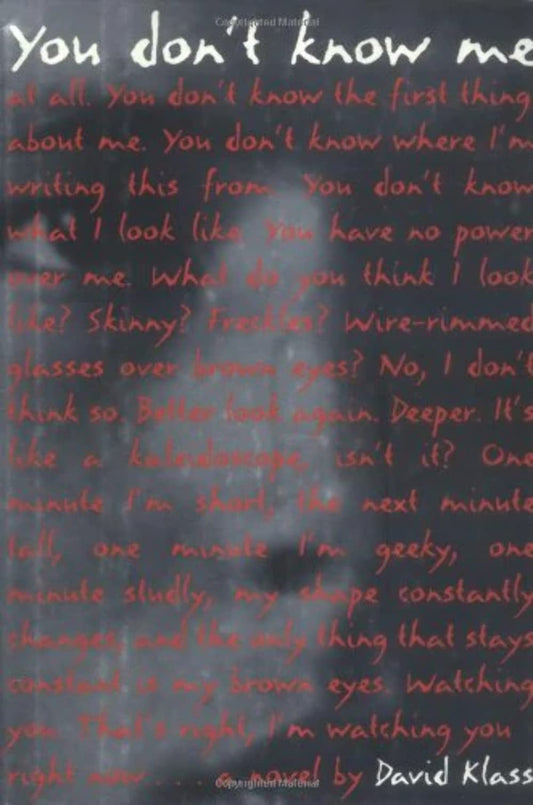 Copyrighted Material
You don't know me
at all. You don't know the first thing
about me. You don't know where I'm
writing this from. You don't know
what I look like. You have no power
over me. What do you think I look
like? Skinny? Freckles? Wire-rimmed
glasses over brown eyes? No, I don't
think so. Better look again. Deeper. It's
like a kaleidoscope, isn't it? One
minute I'm short, the next minute
tall, one minute I'm geeky, one
minute studly, my shape constantly
changes, and the only thing that stays
constant is my brown eyes. Watching
you. That's right, I'm watching you
right now . . . . a novel by David Klass
Copyrighted Material